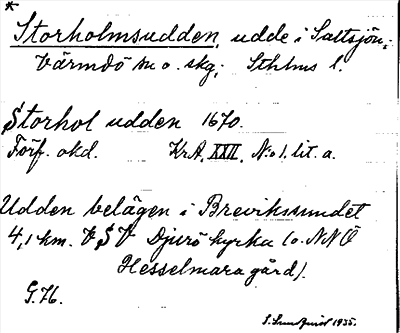 *
Storholmsudden, udde i Saltsjön;
Värmdö sn o. skg; Sthlms l.
Storhol udden 1670.
Förf. okd. KrA, XXII, N:o 1. lit. a.
Udden belägen i Brevikssundet
4,1 km. VSV Djurö kyrka (o. NNÖ
Hesselmara gård).
G.H.
S. Sundqvist 1935.